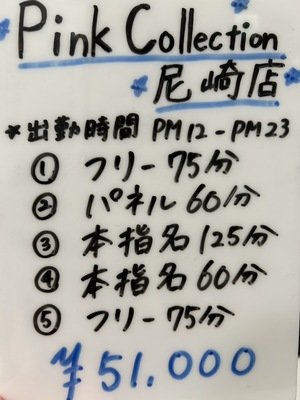 Pink Collection
尼崎店
*出勤時間 PM12-PM23
① フリー 75分
② パネル 60分
③ 本指名 125分
④ 本指名 60分
⑤ フリー 75分
¥51.000